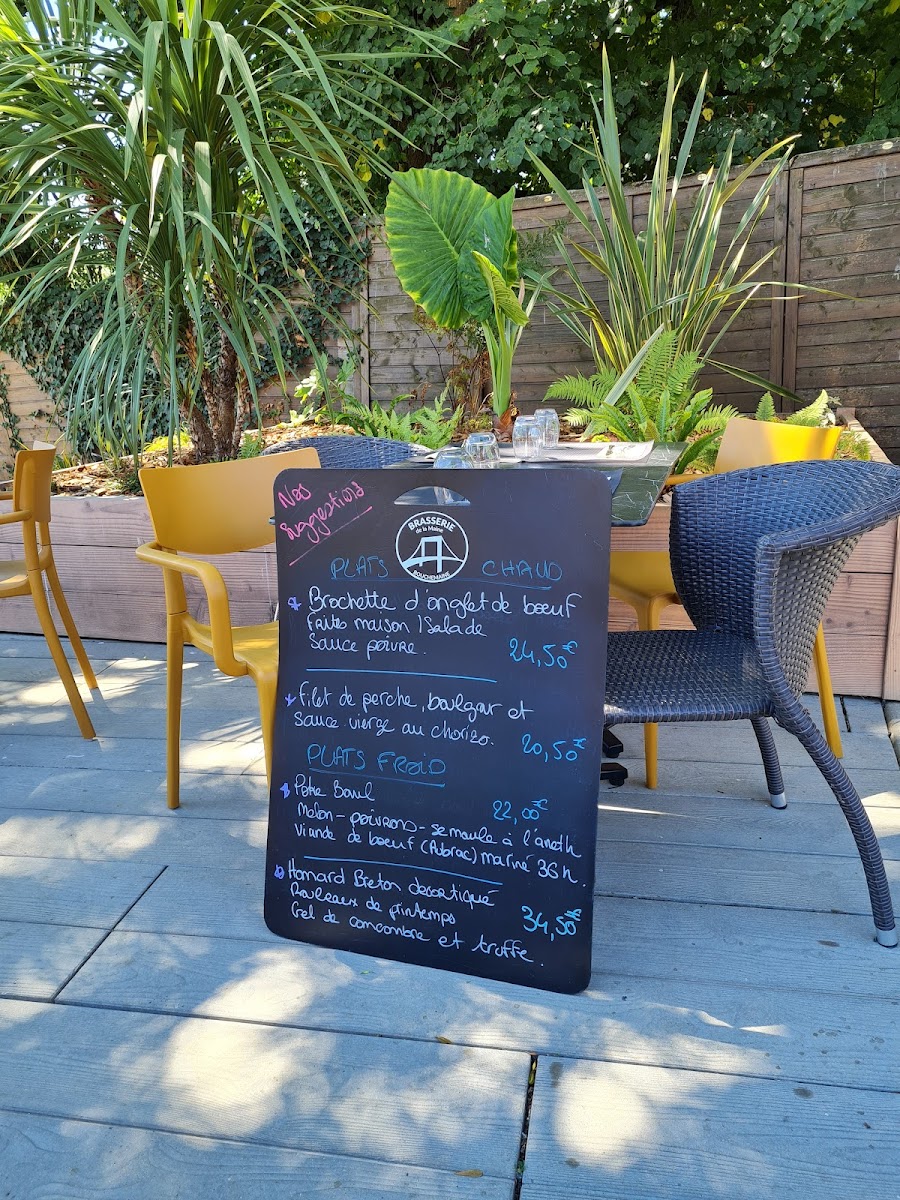 Nos
Suggestions
BRASSERIE
de la Maine
BOUCHEMAINE
PLATS CHAUD
Brochette d'onglet de boeuf
Frites maison / Salade
Sauce poivre.
24,50€
Filet de perche, boulgour et
Sauce vierge au chorizo.
20,50€
PLATS FROID
Poke Bowl
22,00€
Melon - poivrons - semoule à l'aneth
Viande de boeuf (Aubrac) mariné 36h.
Homard Breton decortiqué
Rouleaux de printemps
34,50€
Gel de concombre et truffe.